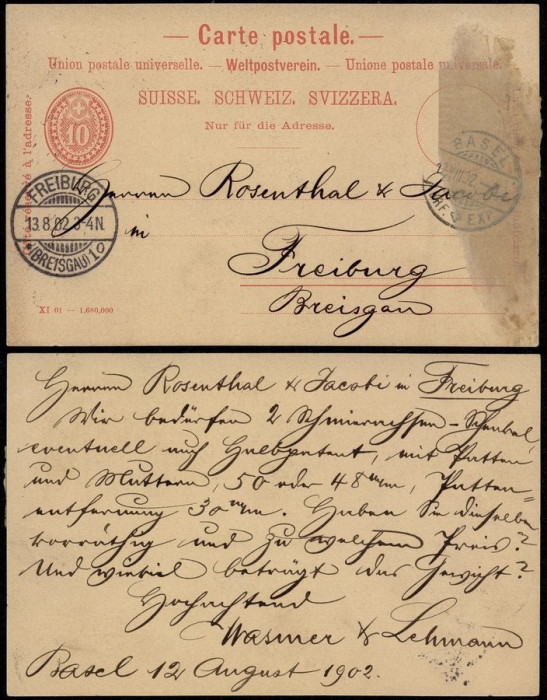 — Carte postale. —
Union postale universelle. — Weltpostverein. — Unione postale universale.
SUISSE. SCHWEIZ. SVIZZERA.
Nur für die Adresse.
Côté réservé à l'adresse.
10
Herren Rosenthal & Jacobi
in
Freiburg
Breisgau
FREIBURG
13.8.02.3-4N.
(BREISGAU) 10
BASEL
BRF. EXP.
XI 01 — 1,680,000
Herren Rosenthal & Jacobi in Freiburg
Wir bedürfen 2 Schmierachsen-Schenkel,
eventuell auch Halbpatent, mit Putten
und Muttern, 50 oder 48 m/m, Putten-
entfernung 30 m/m. Haben Sie dieselben
vorräthig und zu welchem Preis?
Und wieviel beträgt das Gewicht?
Hochachtend
Wasmer & Lehmann
Basel 12 August 1902.